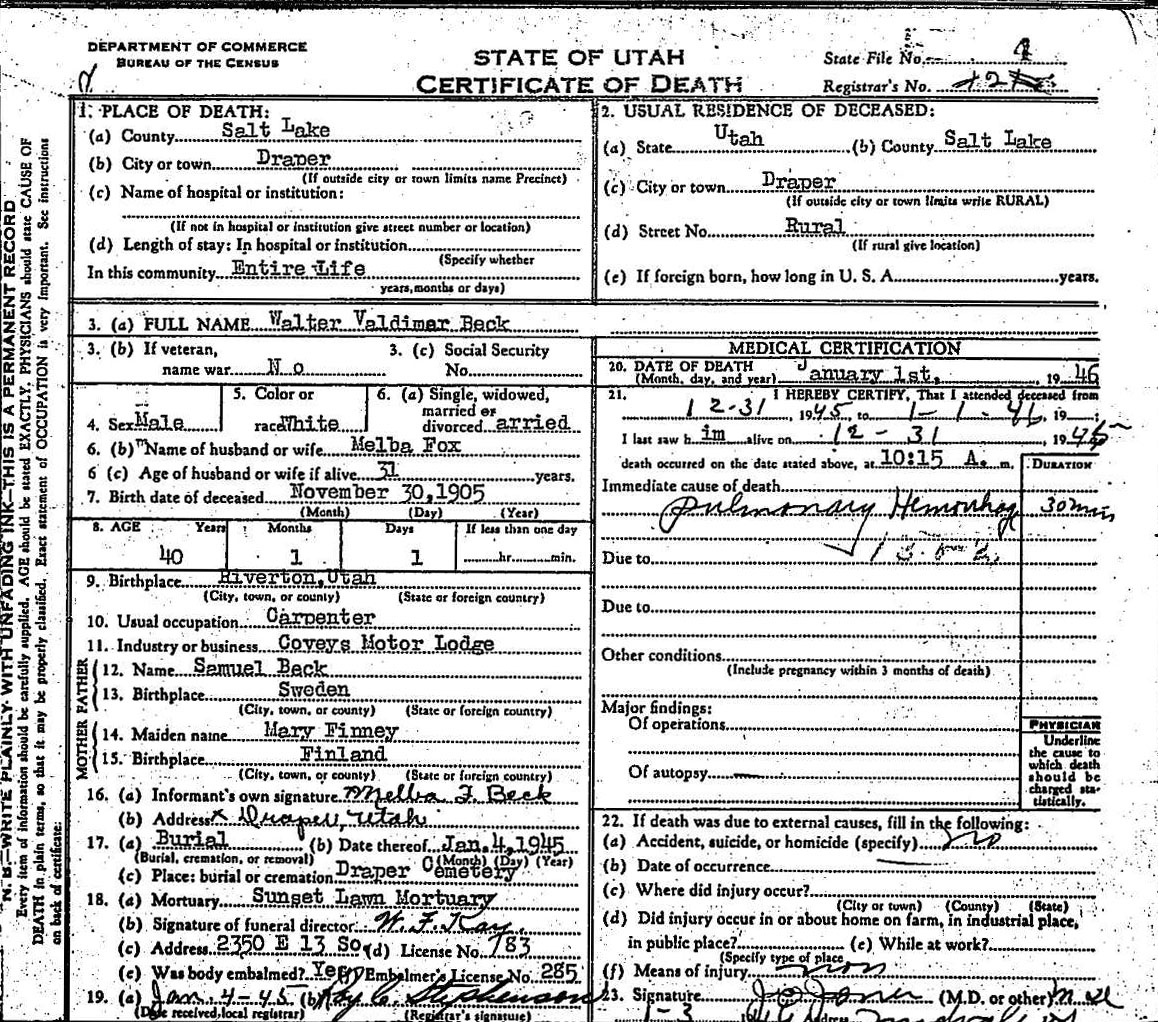 DEPARTMENT OF COMMERCE
BUREAU OF THE CENSUS
STATE OF UTAH
CERTIFICATE OF DEATH
State File No.
Registrar's No.
N. B.—WRITE PLAINLY WITH UNFADING INK—THIS IS A PERMANENT RECORD
Every item of information should be carefully supplied. AGE should be stated EXACTLY. PHYSICIANS should state CAUSE OF
DEATH in plain terms, so that it may be properly classified. Exact statement of OCCUPATION is very important. See instructions
on back of certificate:
1. PLACE OF DEATH:
(a) County Salt Lake
(b) City or town Draper
(If outside city or town limits name Precinct)
(c) Name of hospital or institution:
(If not in hospital or institution give street number or location)
(d) Length of stay: In hospital or institution
(Specify whether
In this community Entire Life
years, months or days)
2. USUAL RESIDENCE OF DECEASED:
(a) State Utah (b) County Salt Lake
(c) City or town Draper
(If outside city or town limits write RURAL)
(d) Street No. Rural
(If rural give location)
(e) If foreign born, how long in U. S. A. years.
3. (a) FULL NAME Walter Valdimar Beck
3. (b) If veteran, 3. (c) Social Security
name war No No.
4. Sex Male
5. Color or
race White
6. (a) Single, widowed,
married or
divorced arried
6. (b) m Name of husband or wife Melba Fox
6 (c) Age of husband or wife if alive 31 years.
7. Birth date of deceased November 30, 1905
(Month) (Day) (Year)
8. AGE Years Months Days If less than one day
40 1 1 hr. min.
9. Birthplace Riverton, Utah
(City, town, or county) (State or foreign country)
10. Usual occupation Carpenter
11. Industry or business Coveys Motor Lodge
FATHER
12. Name Samuel Beck
13. Birthplace Sweden
(City, town, or county) (State or foreign country)
MOTHER
14. Maiden name Mary Finney
15. Birthplace Finland
(City, town, or county) (State or foreign country)
16. (a) Informant's own signature Melba F. Beck
(b) Address x Draper, Utah
17. (a) Burial (b) Date thereof Jan. 4, 1945
(Burial, cremation, or removal) (Month) (Day) (Year)
(c) Place: burial or cremation Draper Cemetery
18. (a) Mortuary Sunset Lawn Mortuary
(b) Signature of funeral director W. F. Kay.
(c) Address 2350 E 13 So. (d) License No. 783
(e) Was body embalmed? Yes (f) Embalmer's License No. 285
19. (a) Jan. 4-45 (b) Ray C Stephenson
(Date received, local registrar) (Registrar's signature)
MEDICAL CERTIFICATION
20. DATE OF DEATH
(Month, day, and year) January 1st, 1946
21. I HEREBY CERTIFY, That I attended deceased from
12-31, 1945, to 1-1-46, 19
I last saw him alive on 12-31, 1945
death occurred on the date stated above, at 10:15 A. m.
DURATION
Immediate cause of death
Pulmonary Hemorrhag 30 mins
Due to
Due to
Other conditions
(Include pregnancy within 3 months of death)
Major findings:
Of operations
Of autopsy
PHYSICIAN
Underline
the cause to
which death
should be
charged sta-
tistically.
22. If death was due to external causes, fill in the following:
(a) Accident, suicide, or homicide (specify) no
(b) Date of occurrence
(c) Where did injury occur?
(City or town) (County) (State)
(d) Did injury occur in or about home on farm, in industrial place,
in public place? (e) While at work?
(Specify type of place
(f) Means of injury non
23. Signature (M.D. or other) M D
1-3 Address